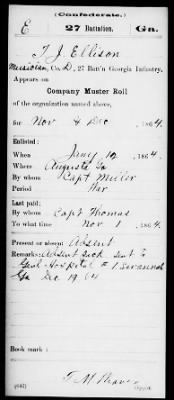 (Confederate.)
E 27 Battalion. Ga.
T J Ellison
Musician, Co. D, 27 Batt'n Georgia Infantry.
Appears on
Company Muster Roll
of the organization named above,
for Nov & Dec, 1864.
Enlisted:
When Jany 12, 1864.
Where Augusta Ga
By whom Capt Miller
Period War
Last paid:
By whom Capt Thomas
To what time Nov 1, 1864.
Present or absent Absent
Remarks: Absent Sick sent to
Genl Hospital # 1 Savannah
Ga Dec 19. 64
Book mark:
(642)
Copyist.